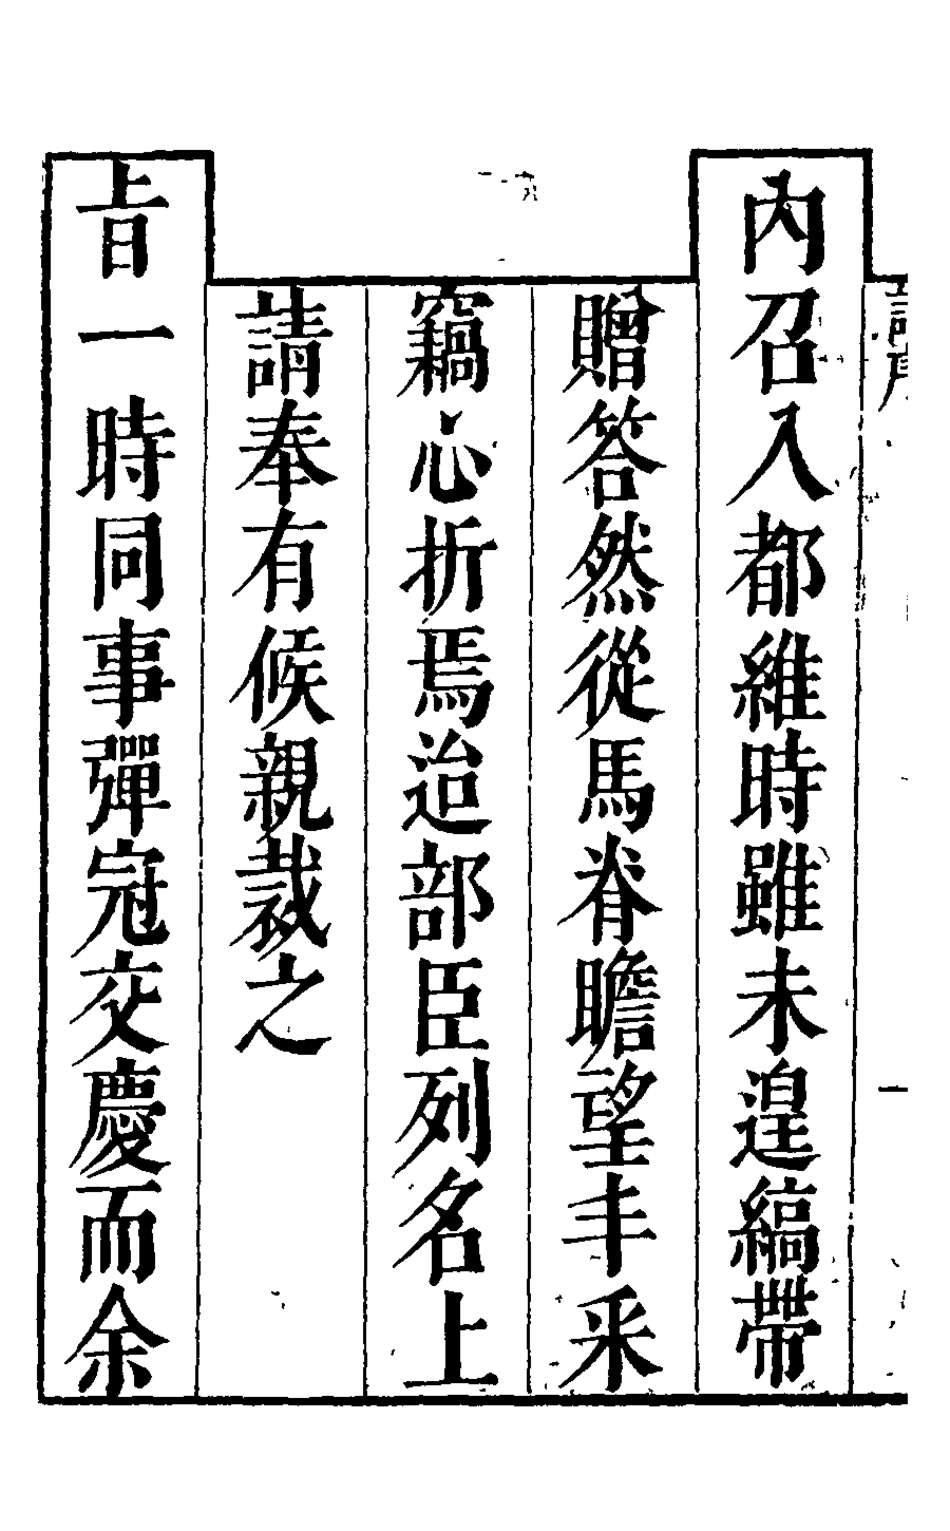 內召入都維時雖未遑縞帶
贈答然從馬脊瞻望丰采
竊心折焉迨部臣列名上
請奉有候親裁之
㫖一時同事彈冠交慶而余